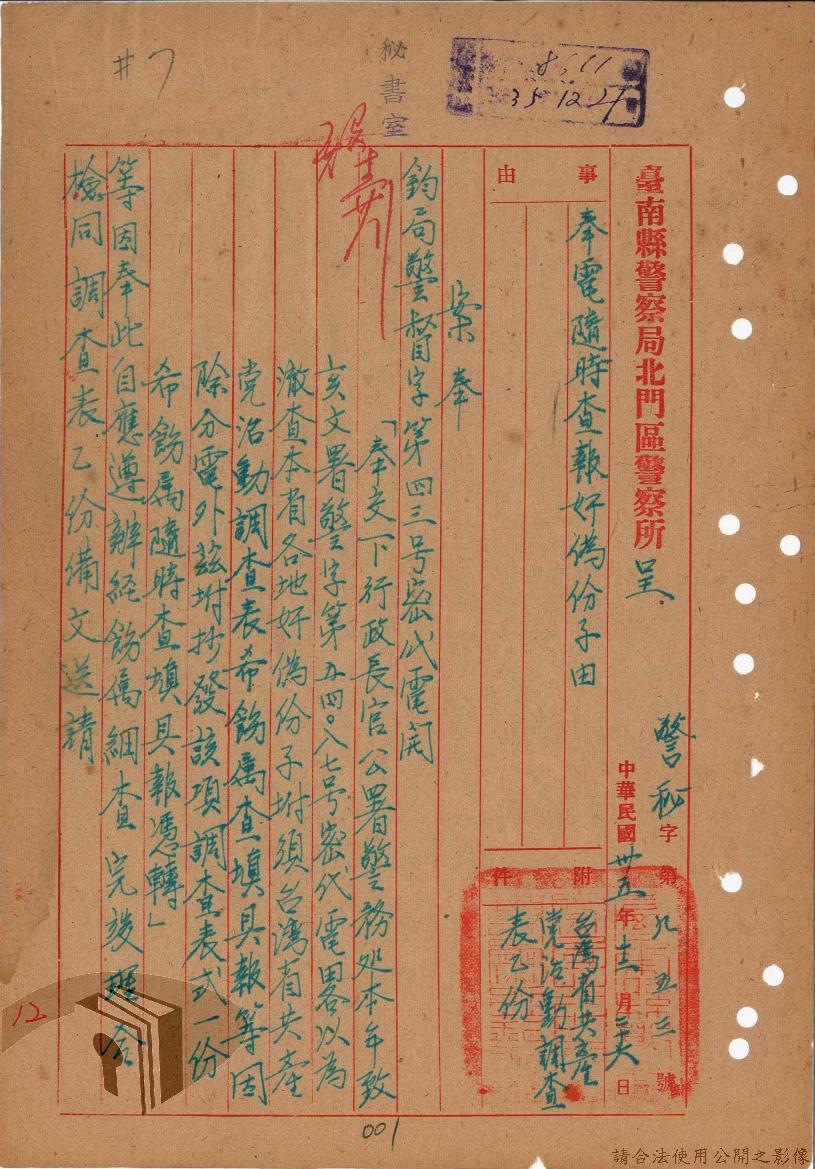 臺南縣警察局北門區警察所呈
警秘字第 九五三 號
中華民國卅五年十二月二十六日
事由
奉電隨時查報奸偽份子由
附件
台灣省共產
党活動調查
表乙份
案奉
鈞局警督字第四三号密代電開
「奉交下行政長官公署警務処本年致
亥文署警字第五四〇八七号密代電畧以為
澈查本省各地奸偽份子坿須台灣省共產
党活動調查表希飭属查填具報等因
除分電外茲坿抄發該項調查表式一份
希飭属隨時查填具報憑轉」
等因奉此自應遵辦經飭属細查完竣理合
檢同調查表乙份備文送請
秘書室
35.12.27
#7
12
001
請合法使用公開之影像